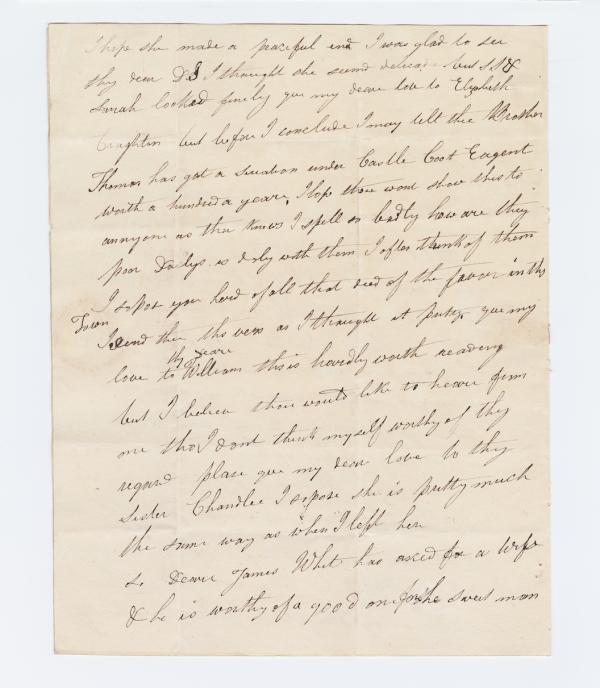 I hope she made a peaceful end I was glad to see
thy dear D I thought she seemd delicate but S S &
Sarah looked finely give my dear love to Elizabeth
Creaghton but before I conclude I may tell thee Brother
Thomas has got a sitvation under Castle Coot Eagent
worth a hundred a yeare, I hope thou wont show this to
annyone as thee knows I spell so badly how are they
poor Doilys is doly with them I often think of them
I sopose you hard of all that died of the favor in this
Town
I send thee this verse as I thought it pretty give my
thy deare
love to William this is hardly worth reading
but I beleive thou would like to heare from
me tho I dont think myself worthy of thy
regard please give my dear love to thy
Sister Chandlee I sopose she is pretty much
the same way as when I left her
so Deare James Whit has asked for a wife
& he is worthy of a good one for he sweet man